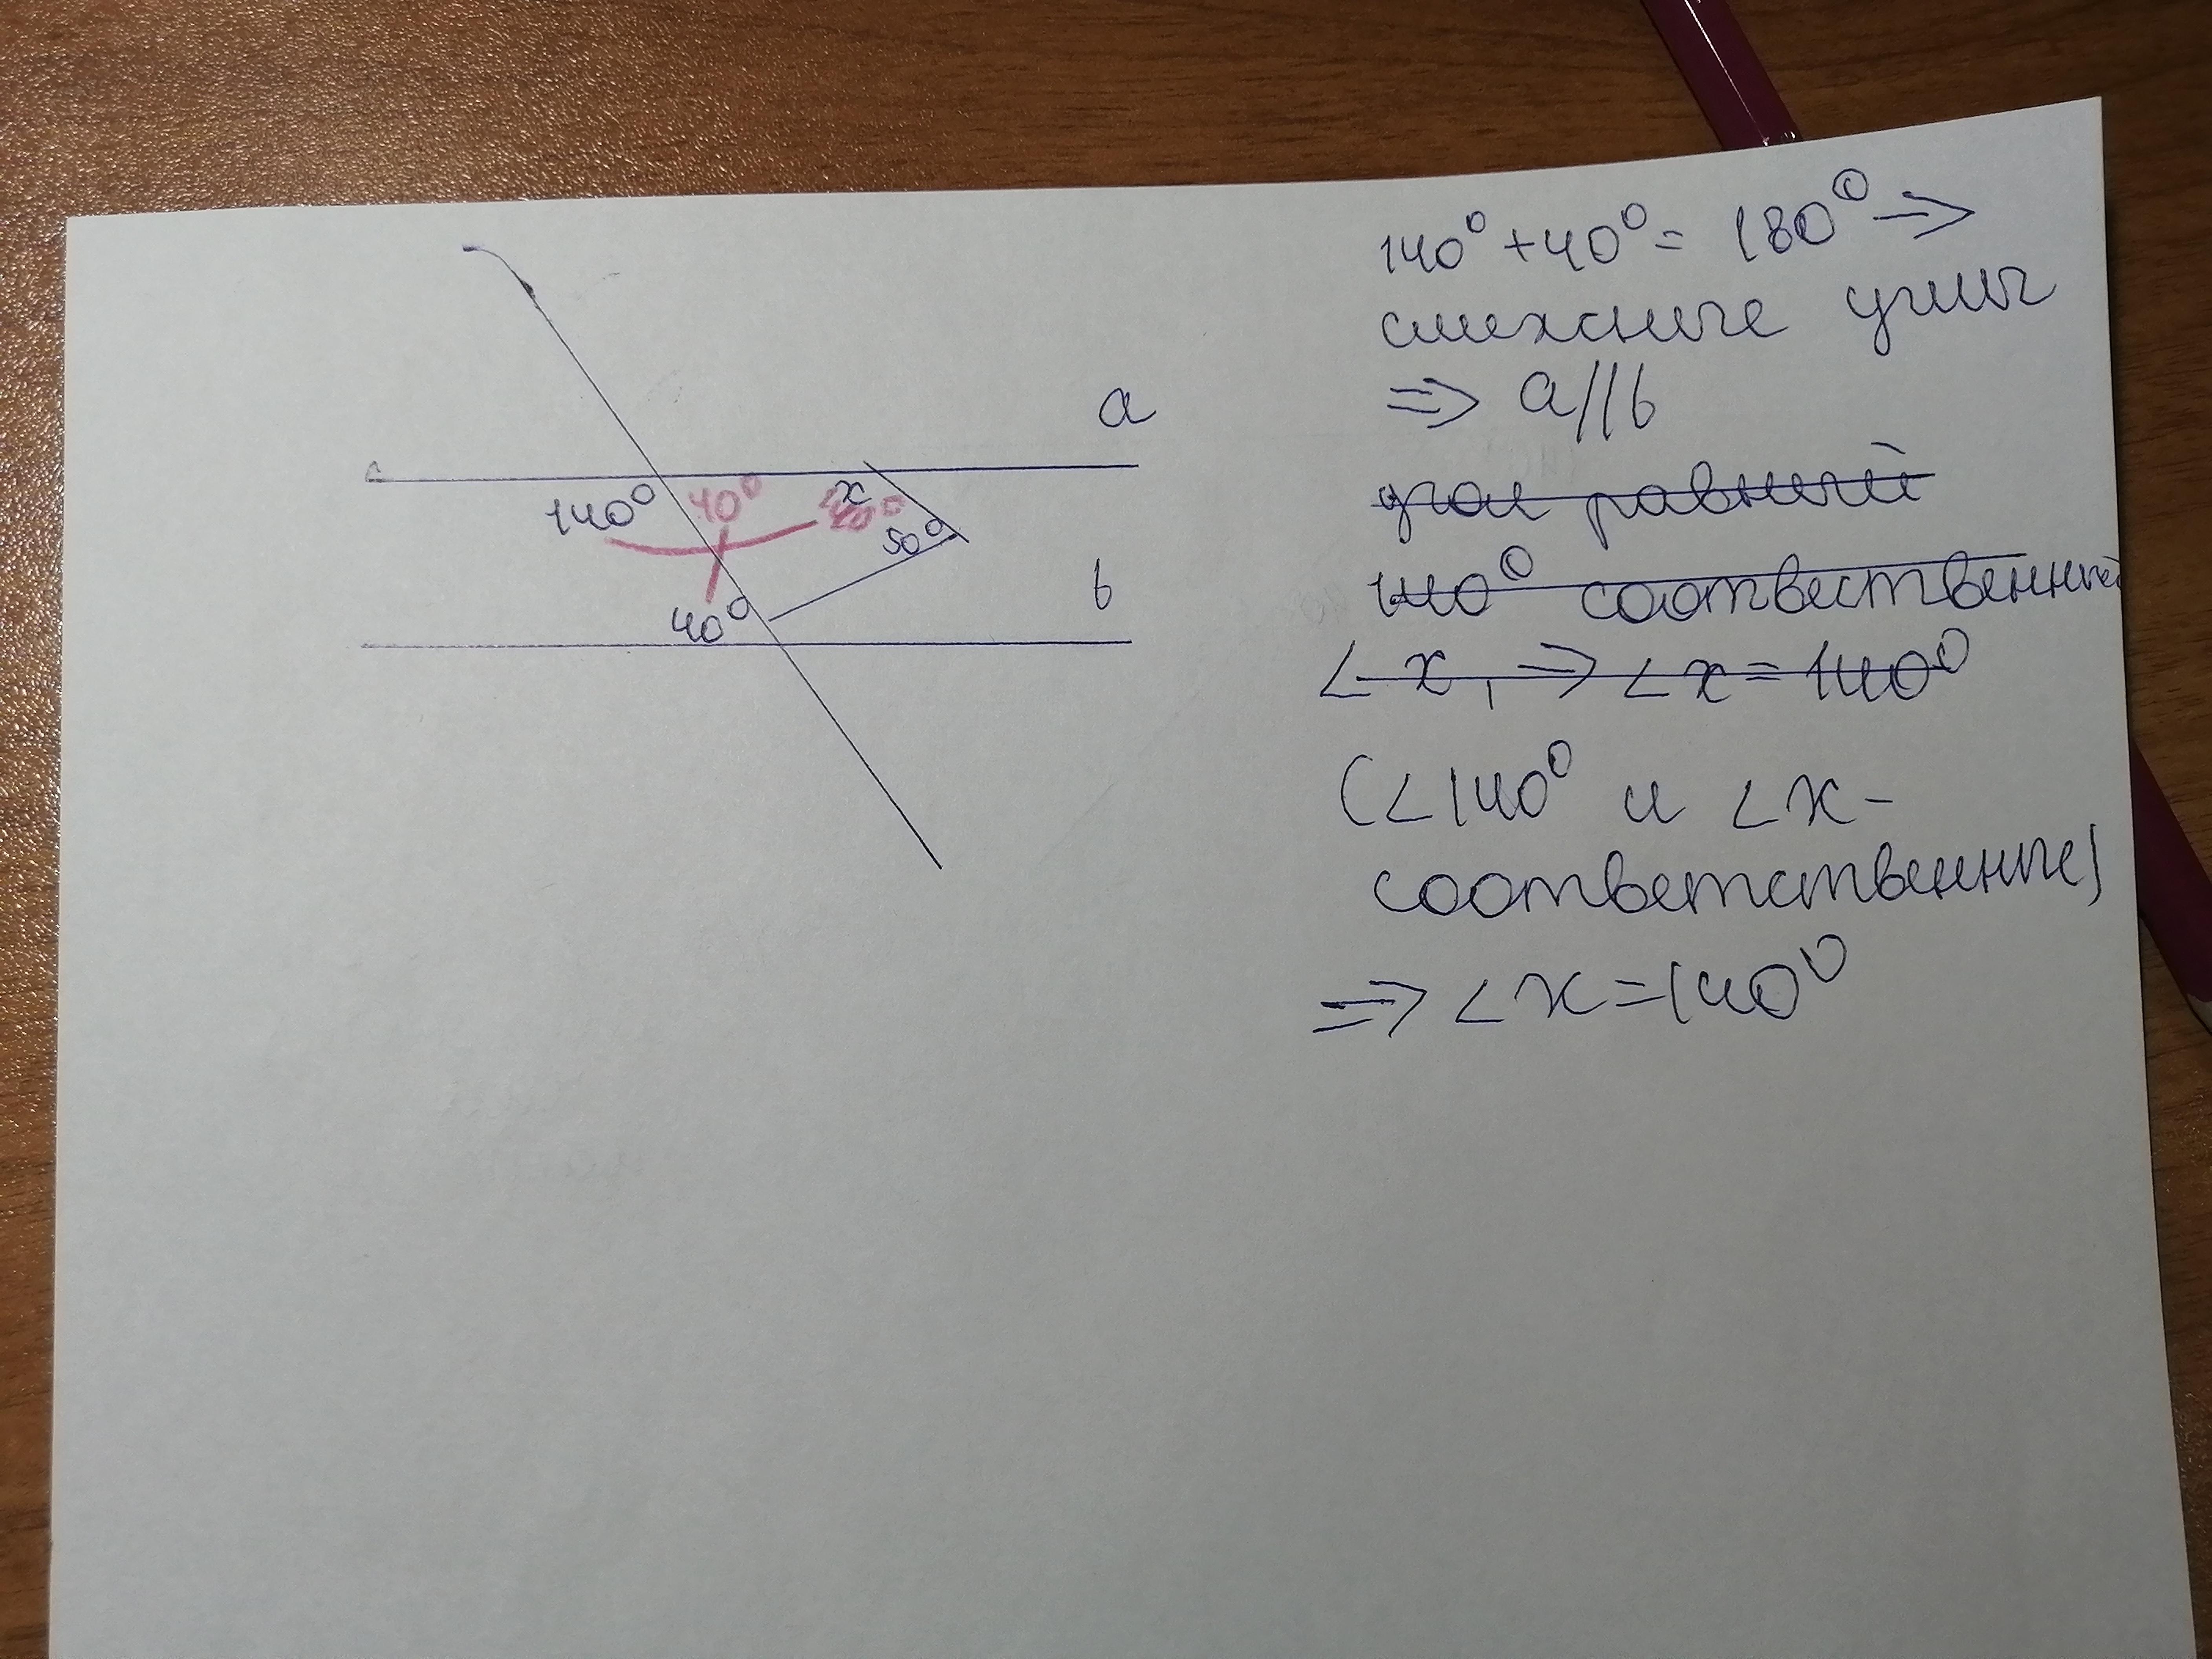 a
140° 40° x
50°
b
40°
140° + 40° = 180° ⇒
смежные углы
⇒ a//b
угол равный
140° соотвественный
∠x, ⇒ ∠x = 140°
(∠140° и ∠x -
соответственные)
⇒ ∠x = 140°